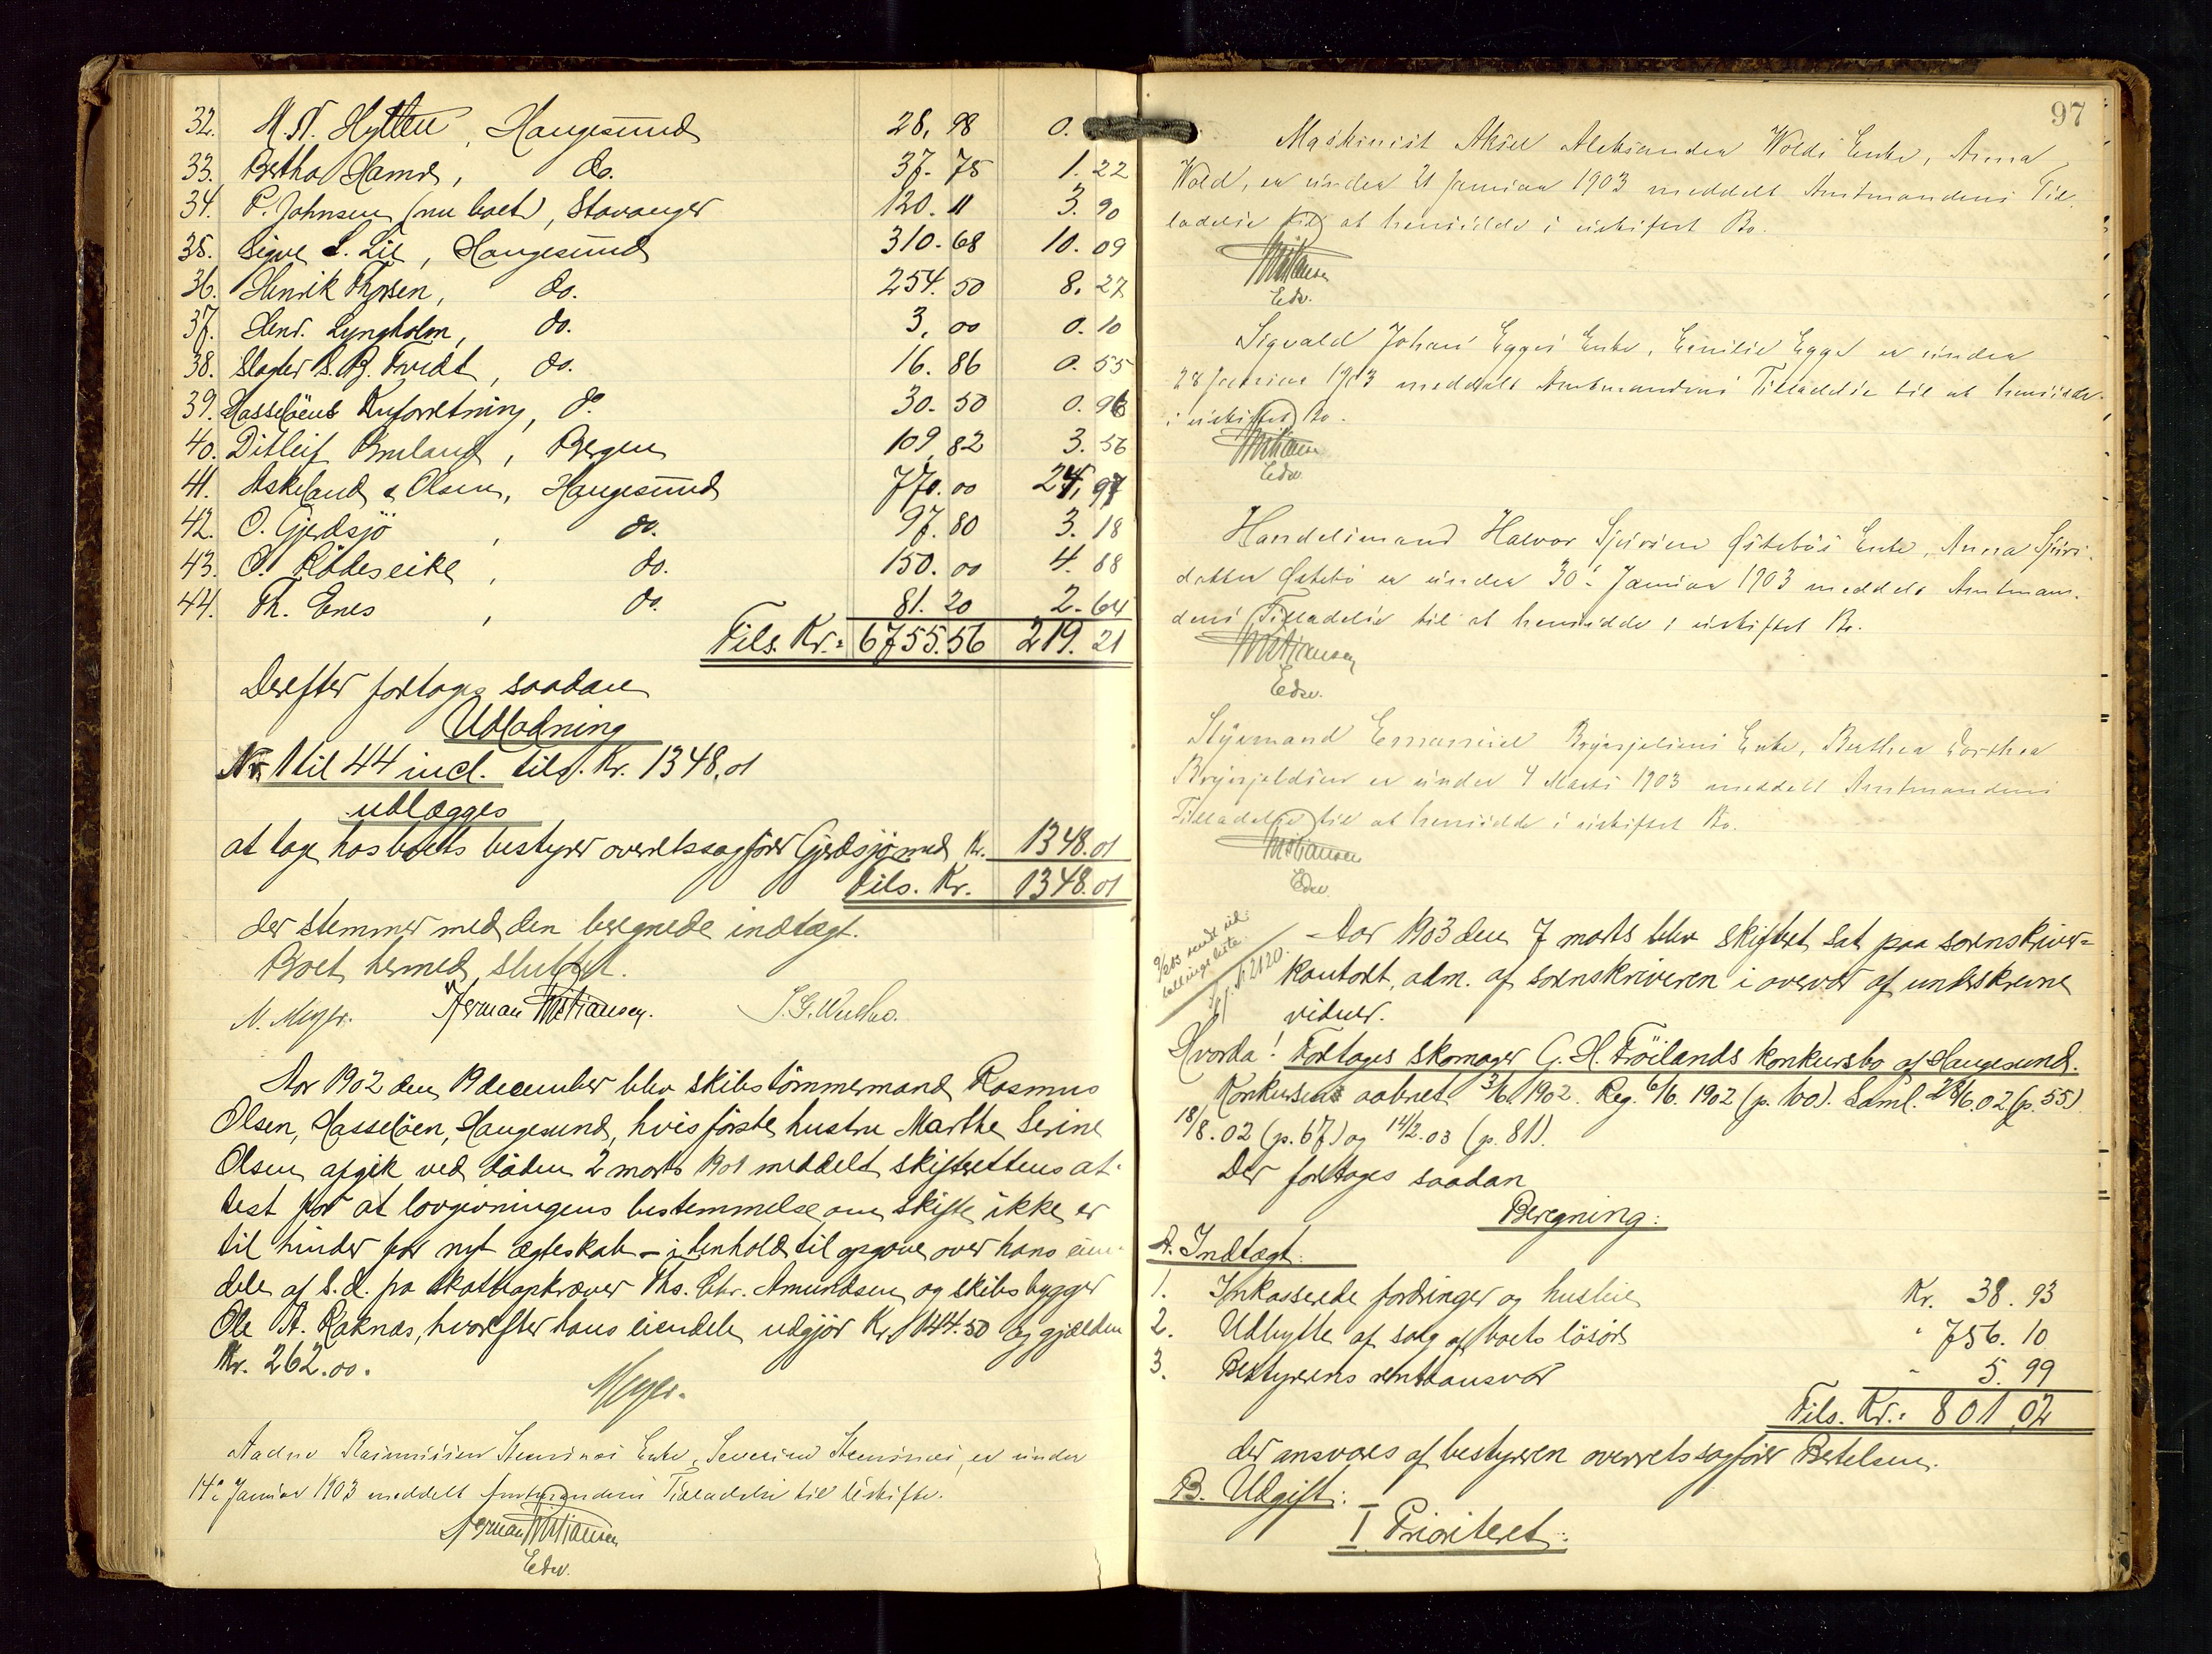 32. M. N. Hytten, Haugesund 28.98 0.
33. Bertha Hamre, do. 37.75 1.22
34. P. Johnsen (nu boet), Stavanger 120.11 3.90
35. Sigve L. Lie, Haugesund 310.68 10.09
36. Henrik Thorsen, do. 254.50 8.27
37. Henr. Lyngholm, do. 3.00 0.10
38. Slagter S. B. Tvedt, do. 16.86 0.55
39. Hasseløens Kulforretning, do 30.50 0.98
40. Ditleif Bruland, Bergen 109.82 3.56
41. Askeland & Olsen, Haugesund 770.00 24.97
42. O. Gjerdsjö, do. 97.80 3.18
43. O. Rödeseike, do. 150.00 4.88
44. Th. Enes, do. 81.20 2.64
Tils. Kr. = 6755.56 219.21
Derefter foretoges saadan
Udlodning
Nr. 1 til 44 incl. tils. Kr. 1348.01
udlægges
at tage hos boets bestyrer overretssagfører Gjerdsjö med Kr. 1348.01
Tils. Kr. 1348.01
der stemmer med den beregnede indtægt.
Boet hermed sluttet.
N. Meyer. Herman Kristiansen.
Aar 1902 den 19 december blev skibstömmermand Rasmus
Olsen, Hasselöen, Haugesund, hvis förste hustru Marthe Serine
Olsen afgik ved döden 2 marts 1901 meddelt skifterettens at-
test for at lovgivningens bestemmelse om skifte ikke er
til hinder for nyt ægteskab - i henhold til opgave over hans eien-
dele af s. d. fra skatteopkræver Ths. Chr. Amundsen og skibsbygger
Ole A. Raknæs, hvorefter hans eiendele udgjør Kr. 1444.50 og gjælden
Kr. 262.00.
Meyer.
Aadne Rasmussen Stensnes Enke, Severine Stensnes, er under
14de Januar 1903 meddelt Amtmandens Tilladelse til Uskifte.
Herman Kristiansen
Edsv.
97
Maskinist Aksel Aleksander Wolds Enke, Anna
Wold, er under 21 Januar 1903 meddelt Amtmandens Til-
ladelse til at hensidde i uskiftet Bo.
Kristiansen
Edsv.
Sigvald Johan Egges Enke, Emilie Egge er under
28 Januar 1903 meddelt Amtmandens Tilladelse til at hensidde
i uskiftet Bo.
Kristiansen
Edsv.
Handelsmand Halvor Sjursen Østebös Enke, Anna Sjurs-
datter Østebö er under 30te Januar 1903 meddelt Amtman-
dens Tilladelse til at hensidde i uskiftet Bo.
Kristiansen
Edsv.
Styrmand Emanuel Brynjelsens Enke, Berthea Dorthea
Brynjeldsen er under 4 Marts 1903 meddelt Amtmandens
Tilladelse til at hensidde i uskiftet Bo.
Kristiansen
Edsv
Aar 1903 den 7 marts blev skifteret sat paa sorenskriver-
kontoret, adm. af sorenskriveren i overvær af underskrevne
vidner.
Hvorda! Foretoges skomager G. H. Fröilands konkursbo af Haugesund.
Konkursen aabnet 3/6 1902. Reg. 6/6. 1902 (p. 100). Saml. 28/6.02 (p. 55)
18/8.02 (p. 67) og 14/2.03 (p. 81).
Der foretoges saadan
Beregning:
A. Indtægt:
1. Inkasserede fordringer og husleie Kr. 38.93
2. Udbytte af salg af boets lösöre " 756.10
3. Bestyrerens renteansvar " 5.99
Tils. Kr. = 801.02
der ansvares af bestyreren overretssagfører Bertelsen.
B. Udgift:
I Prioriteret: